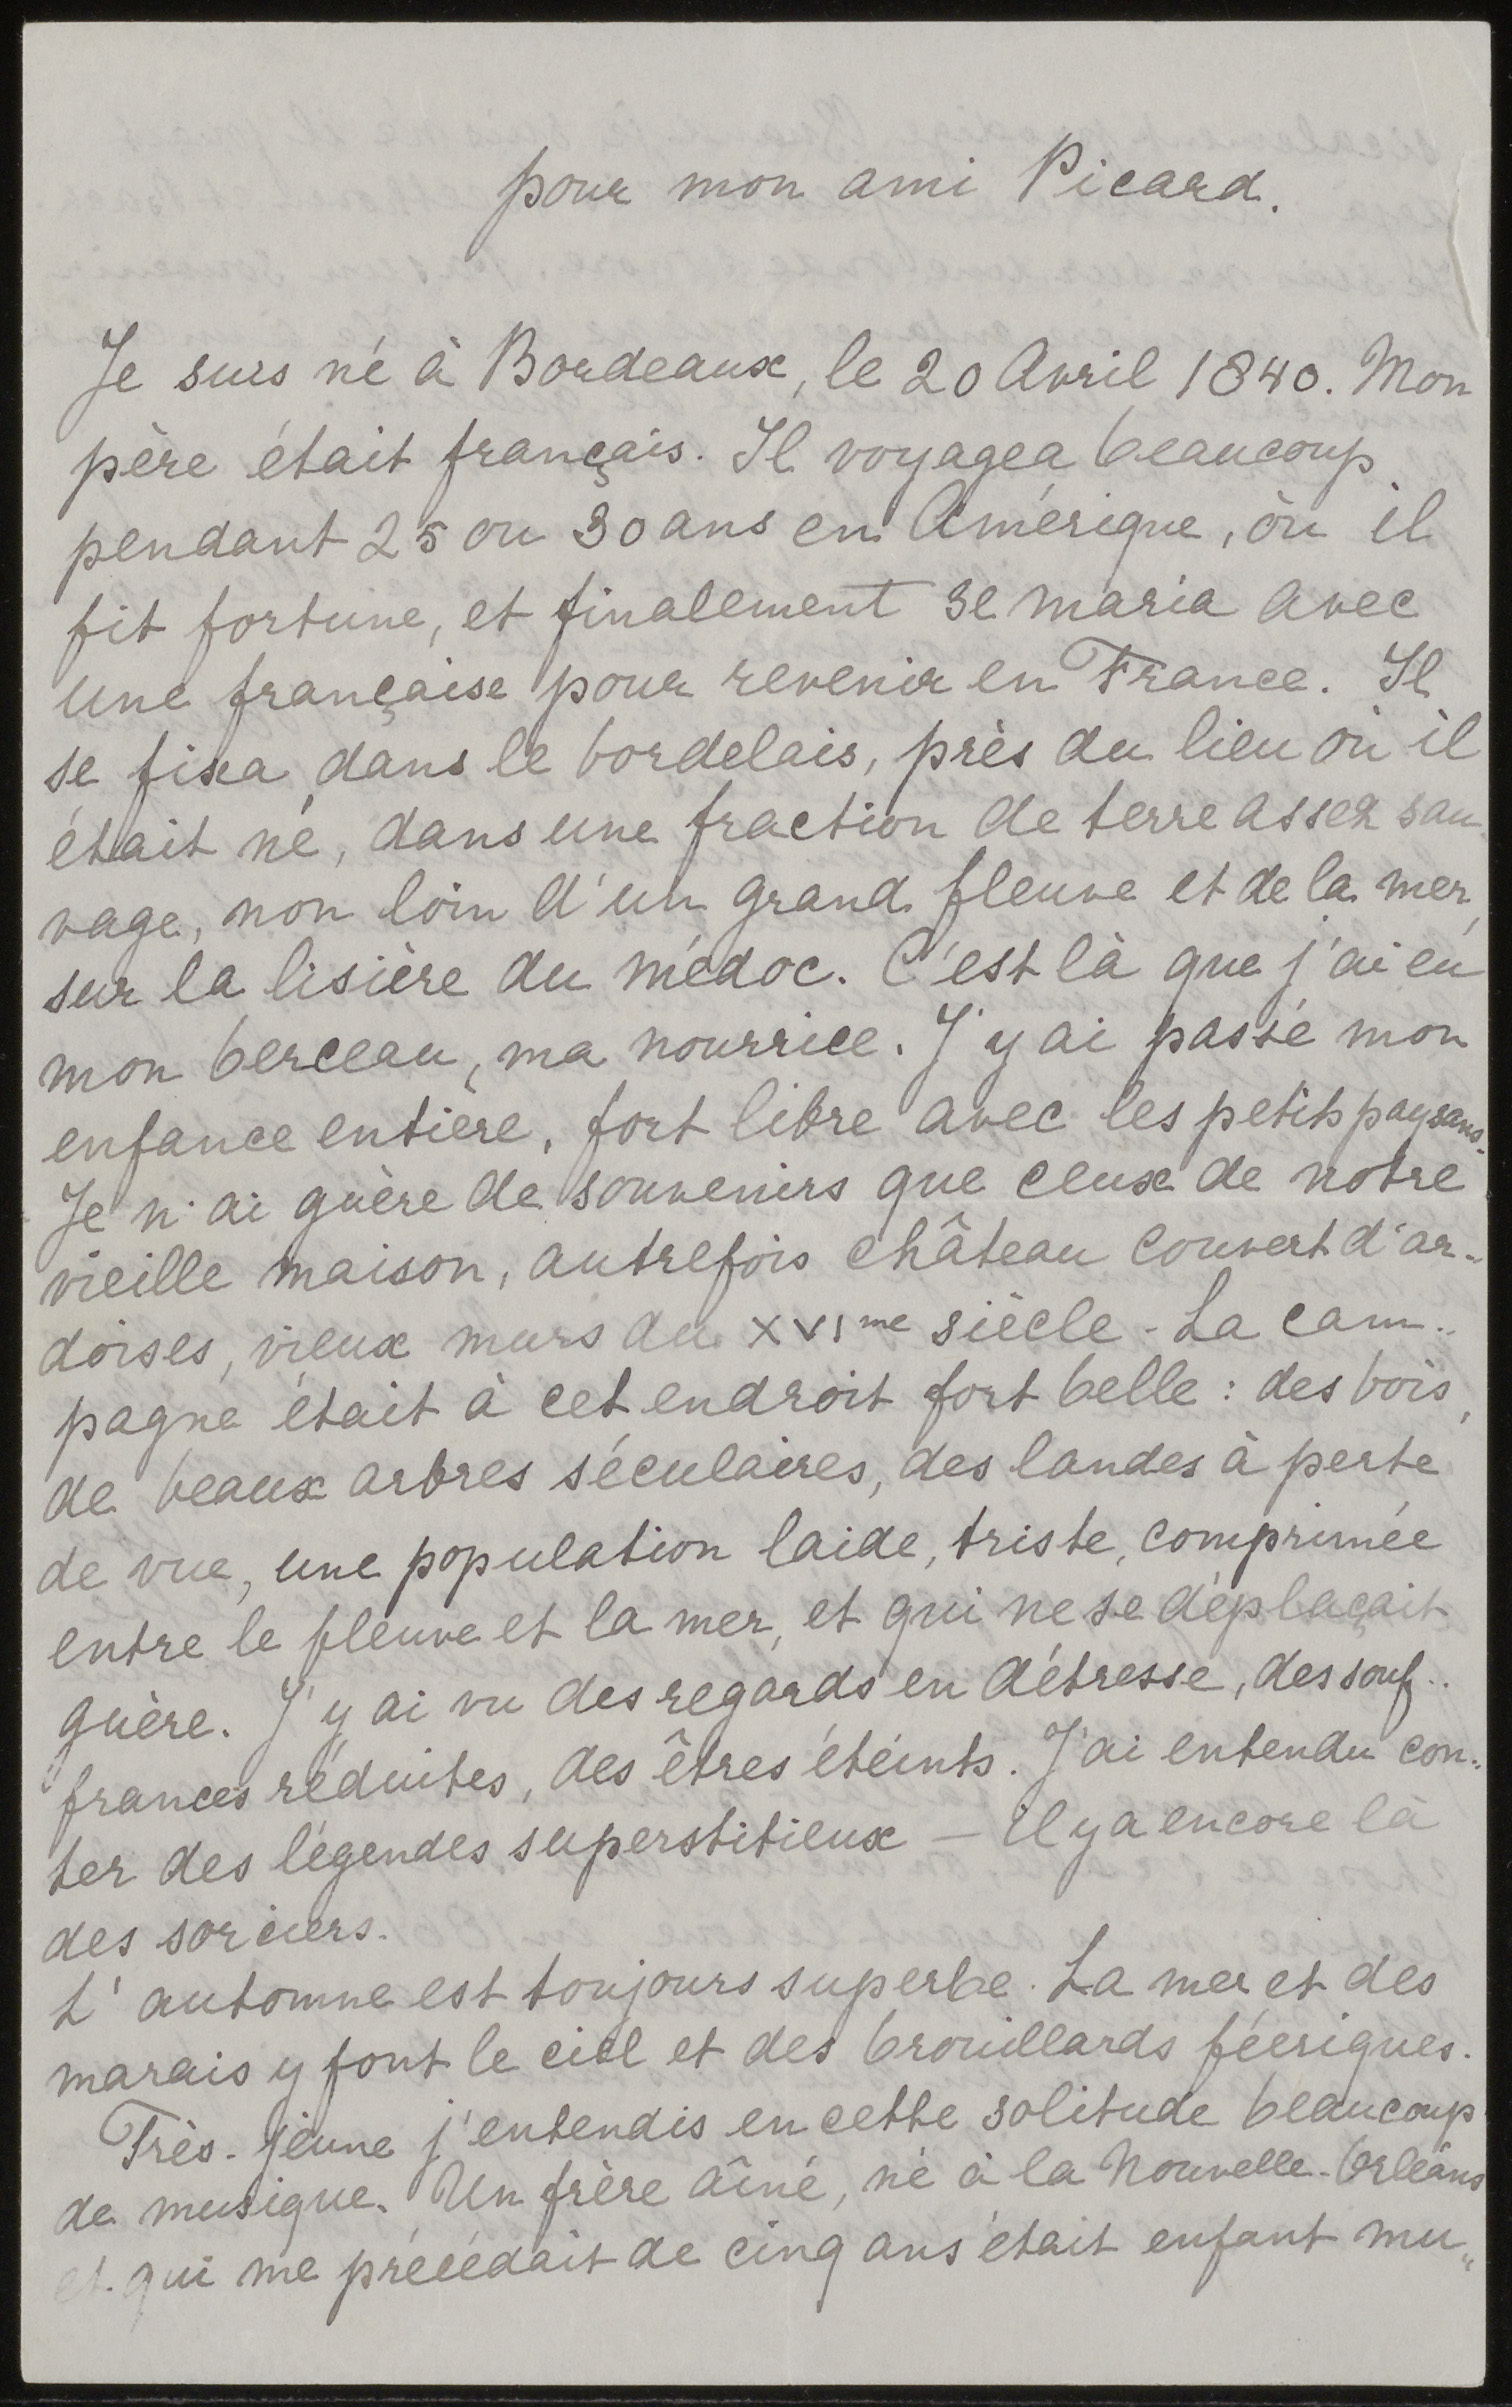 pour mon ami Picard.
Je suis né à Bordeaux, le 20 Avril 1840. Mon
père était français. Il voyagea beaucoup
pendant 25 ou 30 ans en Amérique, où il
fit fortune, et finalement se maria avec
une française pour revenir en France. Il
se fixa, dans le bordelais, près du lieu où il
était né, dans une fraction de terre assez sau-
vage, non loin d'un grand fleuve et de la mer,
sur la lisière du médoc. C'est là que j'ai eu
mon berceau, ma nourrice. J'y ai passé mon
enfance entière, fort libre avec les petits paysans.
Je n'ai guère de souvenirs que ceux de notre
vieille maison, autrefois château couvert d'ar-
doises, vieux murs du XVIme siècle - La cam-
pagne était à cet endroit fort belle : des bois,
de beaux arbres séculaires, des landes à perte
de vue, une population laide, triste, comprimée
entre le fleuve et la mer, et qui ne se déplaçait
guère. J'y ai vu des regards en détresse, des souf-
frances réduites, des êtres éteints. J'ai entendu con-
ter des légendes superstitieux — il y a encore là
des sorciers.
L'automne est toujours superbe. La mer et des
marais y font le ciel et des brouillards féeriques.
Très-jeune j'entendis en cette solitude beaucoup
de musique. Un frère aîné, né à la Nouvelle-Orléans
et qui me précédait de cinq ans était enfant mu-